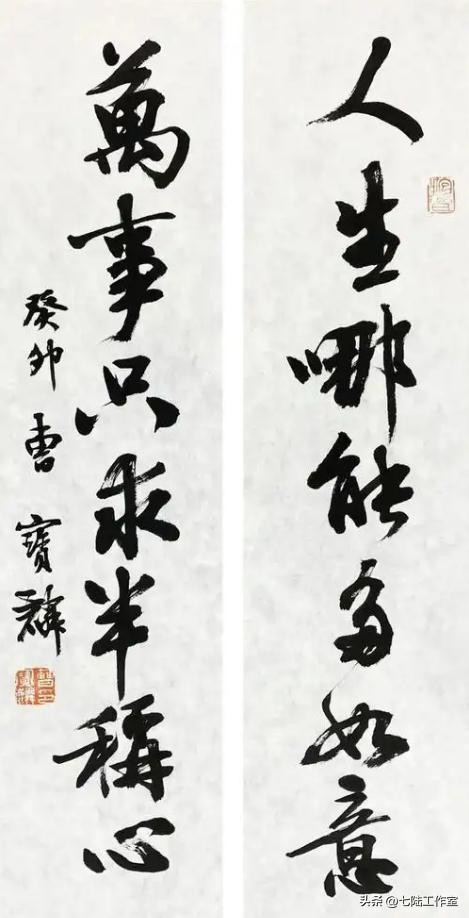 人生哪能多如意
萬事只求半稱心
癸卯曹寶麟
头条 @七陆工作室